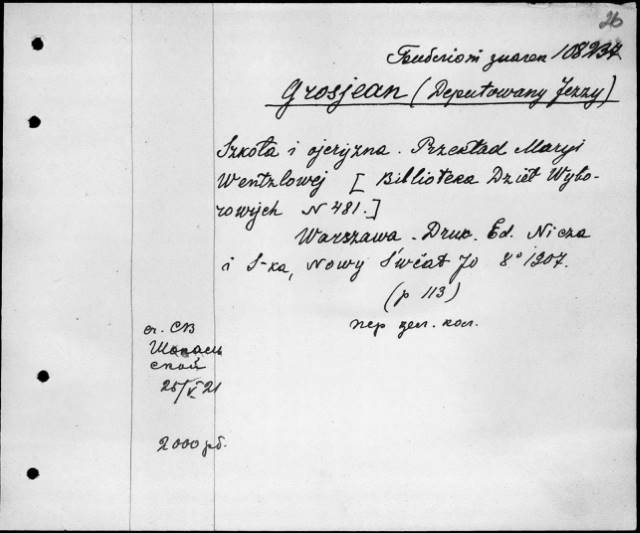 26
108237
Grosjean (Deputowany Jerzy)
Szkoła i ojczyzna. Przekład Maryi
Wentzlowej [Biblioteka Dzieł Wybo-
rowych N 481.]
Warszawa. Druk. Ed. Nicza
i S-ka, Nowy Świat 70 8° 1907.
(p 113)
пер. кол.
от. СВ
25/V 21
2000 рб.